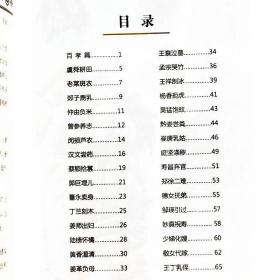 目录
百孝篇 1
虞舜耕田 5
老莱斑衣 7
郯子鹿乳 9
仲由负米 11
曾参养志 12
闵损芦衣 14
汉文尝药 16
蔡顺拾葚 18
郭巨埋儿 19
董永卖身 21
丁兰刻木 24
姜师出妇 26
陆绩怀橘 28
黄香温清 30
姜革负母 33
王裒泣墓 34
孟宗哭竹 36
王祥剖冰 37
杨香扼虎 39
吴猛饱蚊 40
黔娄尝粪 41
崔唐乳姑 44
庭坚涤秽 45
寿昌弃官 47
郑徐二难 51
德女抚弟 56
邹瑛引过 58
妙真祝寿 59
少娣化嫂 60
敬女代嫁 62
王丁乳侄 65